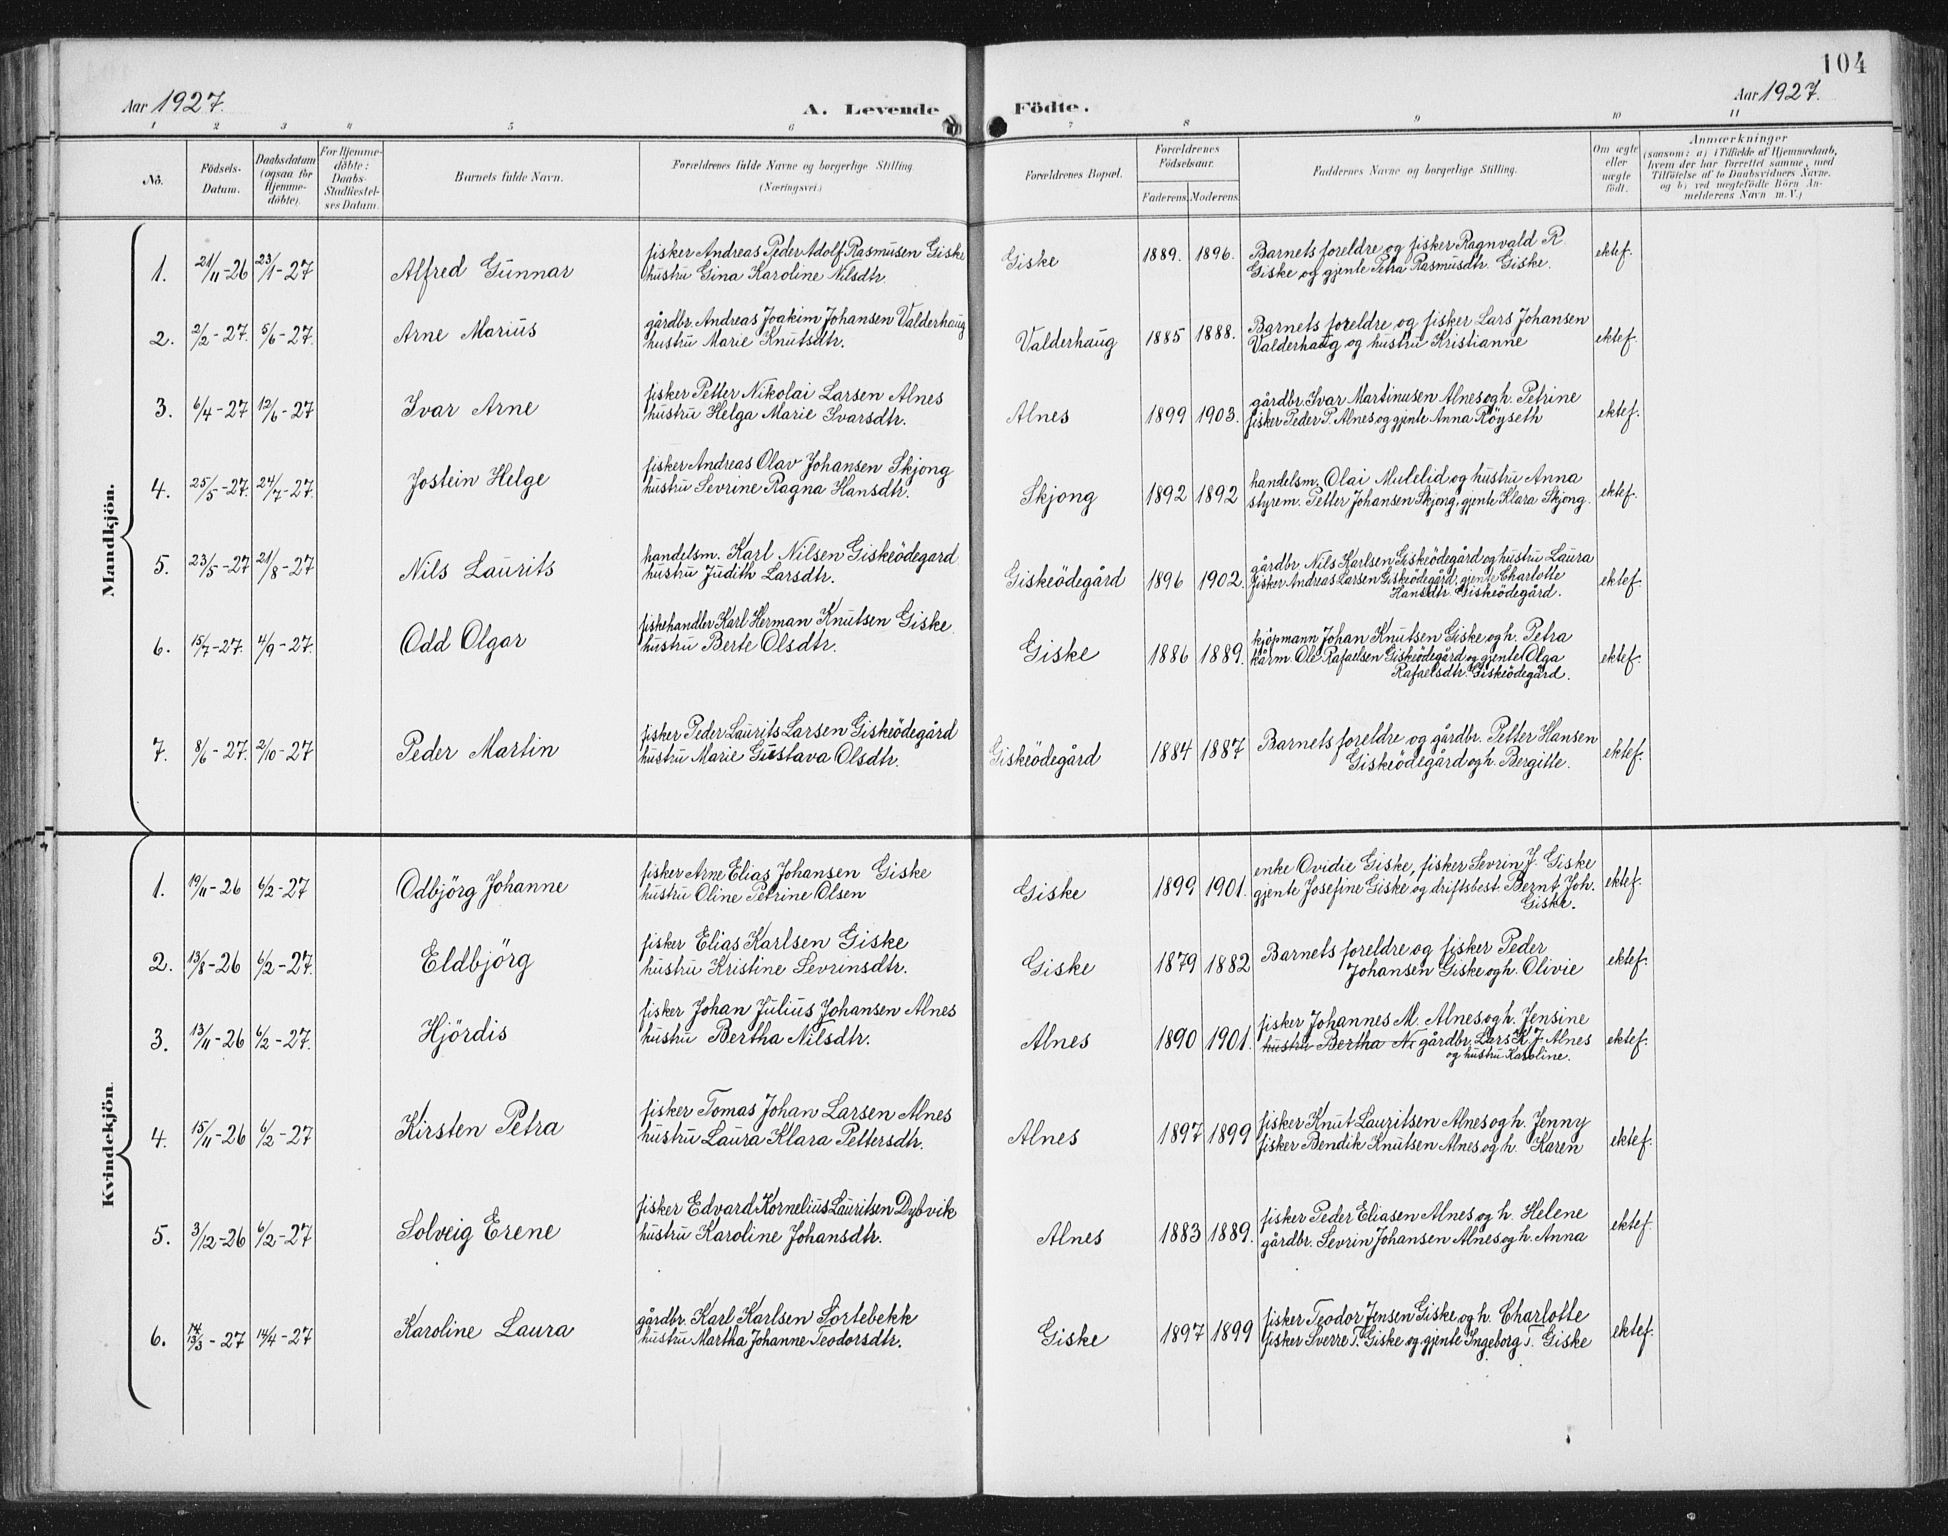 104
Aar 1927.
A. Levende
Födte.
Aar 1927.
1 2 3 4 5 6 7 8 9 10 11
No.
Födsels-Datum.
Daabsdatum (ogsaa for Hjemme-döbte).
For Hjemme-döbte: Daabs-Stadfæstel-ses Datum.
Barnets fulde Navn.
Forældrenes fulde Navne og borgerlige Stilling.
(Næringsvei.)
Forældrenes Bopæl.
Forældrenes Födselsaar.
Faderens. Moderens.
Faddernes Navne og borgerlige Stilling.
Om ægte eller uægte födt.
Anmærkninger
(saasom: a) i Tilfælde af Hjemmedaab,
hvem der har forrettet samme, med
Tilföielse af to Daabsvidners Navne.
og b) ved uægtefödte Börn An-
melderens Navn m. V.)
Mandkjön.
1. 21/11-26 23/1-27 Alfred Gunnar
fisker Andreas Peder Adolf Rasmusen Giske
hustru Gina Karoline Nilsdtr.
Giske 1889. 1896.
Barnets foreldre og fisker Ragnvald R.
Giske og gjente Petra Rasmusdtr. Giske.
ektef.
2. 2/2-27. 5/6-27. Arne Marius
gårdbr. Andreas Joakim Johansen Valderhaug
hustru Marie Knutsdtr.
Valderhaug 1885 1888.
Barnets foreldre og fisker Lars Johansen
Valderhaug og hustru Kristianne
ektef.
3. 6/4-27 12/6-27 Ivar Arne
fisker Petter Nikolai Larsen Alnes
hustru Helga Marie Ivarsdtr.
Alnes 1899 1903.
gårdbr. Ivar Martinusen Alnes og h. Petrine
fisker Peder P. Alnes og gjente Anna Röyseth
ektef.
4. 25/5-27. 24/7-27. Jostein Helge
fisker Andreas Olav Johansen Skjong
hustru Sevrine Ragna Hansdtr.
Skjong 1892 1892
handelsm. Olai Mulelid og hustru Anna
styrem. Petter Johansen Skjong, gjente Klara Skjong.
ektef.
5. 23/5-27 21/8-27 Nils Laurits
handelsm. Karl Nilsen Giskeödegard
hustru Judith Larsdtr.
Giskeödegård 1896 1902.
gårdbr. Nils Karlsen Giskeödegård og hustru Laura
fisker Andreas Larsen Giskeödegård, gjente Charlotte
Hansdtr. Giskeödegård.
ektef.
6. 15/7-27. 4/9-27. Odd Olgar
fiskehandler Karl Herman Knutsen Giske.
hustru Berte Olsdtr.
Giske 1886 1889.
kjöpmann Johan Knutsen Giske og h. Petra
kårm. Ole Rafaelsen Giskeödegård og gjente Olga
Rafaelsdtr. Giskeödegård.
ektef.
7. 8/6-27. 2/10-27 Peder Martin
fisker Peder Laurits Larsen Giskeödegård
hustru Marie Gustava Olsdtr.
Giskeödegård 1884 1887
Barnets foreldre og gårdbr. Petter Hansen
Giskeödegård og h. Bergitte.
ektef.
Kvindekjön.
1. 19/11-26 6/2-27 Odbjörg Johanne
fisker Arne Elias Johansen Giske
hustru Oline Petrine Olsen
Giske 1899 1901.
enke Ovidie Giske, fisker Sevrin J. Giske
gjente Josefine Giske og driftsbest. Bernt Joh.
Giske.
ektef.
2. 13/8-26 6/2-27. Eldbjörg
fisker Elias Karlsen Giske
hustru Kristine Sevrinsdtr.
Giske 1879 1882
Barnets foreldre og fisker Peder
Johansen Giske og h. Olivie
ektef.
3. 13/11-26 6/2-27. Hjördis
fisker Johan Julius Johansen Alnes
hustru Bertha Nilsdtr.
Alnes 1890 1901.
fisker Johannes M. Alnes og h. Jensine
hustru Bertha N. gårdbr. Lars K. J. Alnes
og hustru Karoline.
ektef.
4. 15/11-26 6/2-27 Kirsten Petra
fisker Tomas Johan Larsen Alnes
hustru Laura Klara Pettersdtr.
Alnes 1897 1899
fisker Knut Lauritsen Alnes og h. Jenny
fisker Bendik Knutsen Alnes og h. Karen
ektef.
5. 3/12-26 6/2-27 Solveig Erene
fisker Edvard Kornelius Lauritsen Dybvik
hustru Karoline Johansdtr.
Alnes 1883 1889.
fisker Peder Eliasen Alnes og h. Helene
gårdbr. Sevrin Johansen Alnes og h. Anna
ektef.
6. 13/3-27 14/4-27 Karoline Laura
gårdbr. Karl Karlsen Sortebekk
hustru Martha Johanne Teodorsdtr.
Giske 1897 1899
fisker Teodor Jensen Giske og h. Charlotte
fisker Sverre T. Giske og gjente Ingeborg T. Giske
ektef.